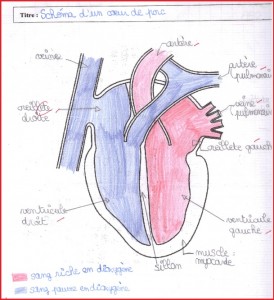 Titre : Schéma d'un cœur de porc
artère
veine
artère
pulmonaire
veine
pulmonaire
oreillette
droite
oreillete gauch
ventricule
droit
ventricule
gauche
muscle :
myocarde
sillon
sang riche en dioxygène
sang pauvre en dioxygène